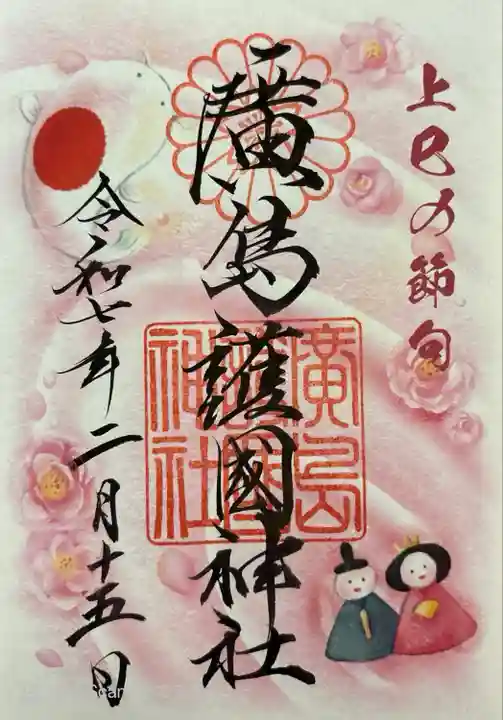 上巳の節句
廣島護國神社
廣島護國神社
令和七年二月十五日